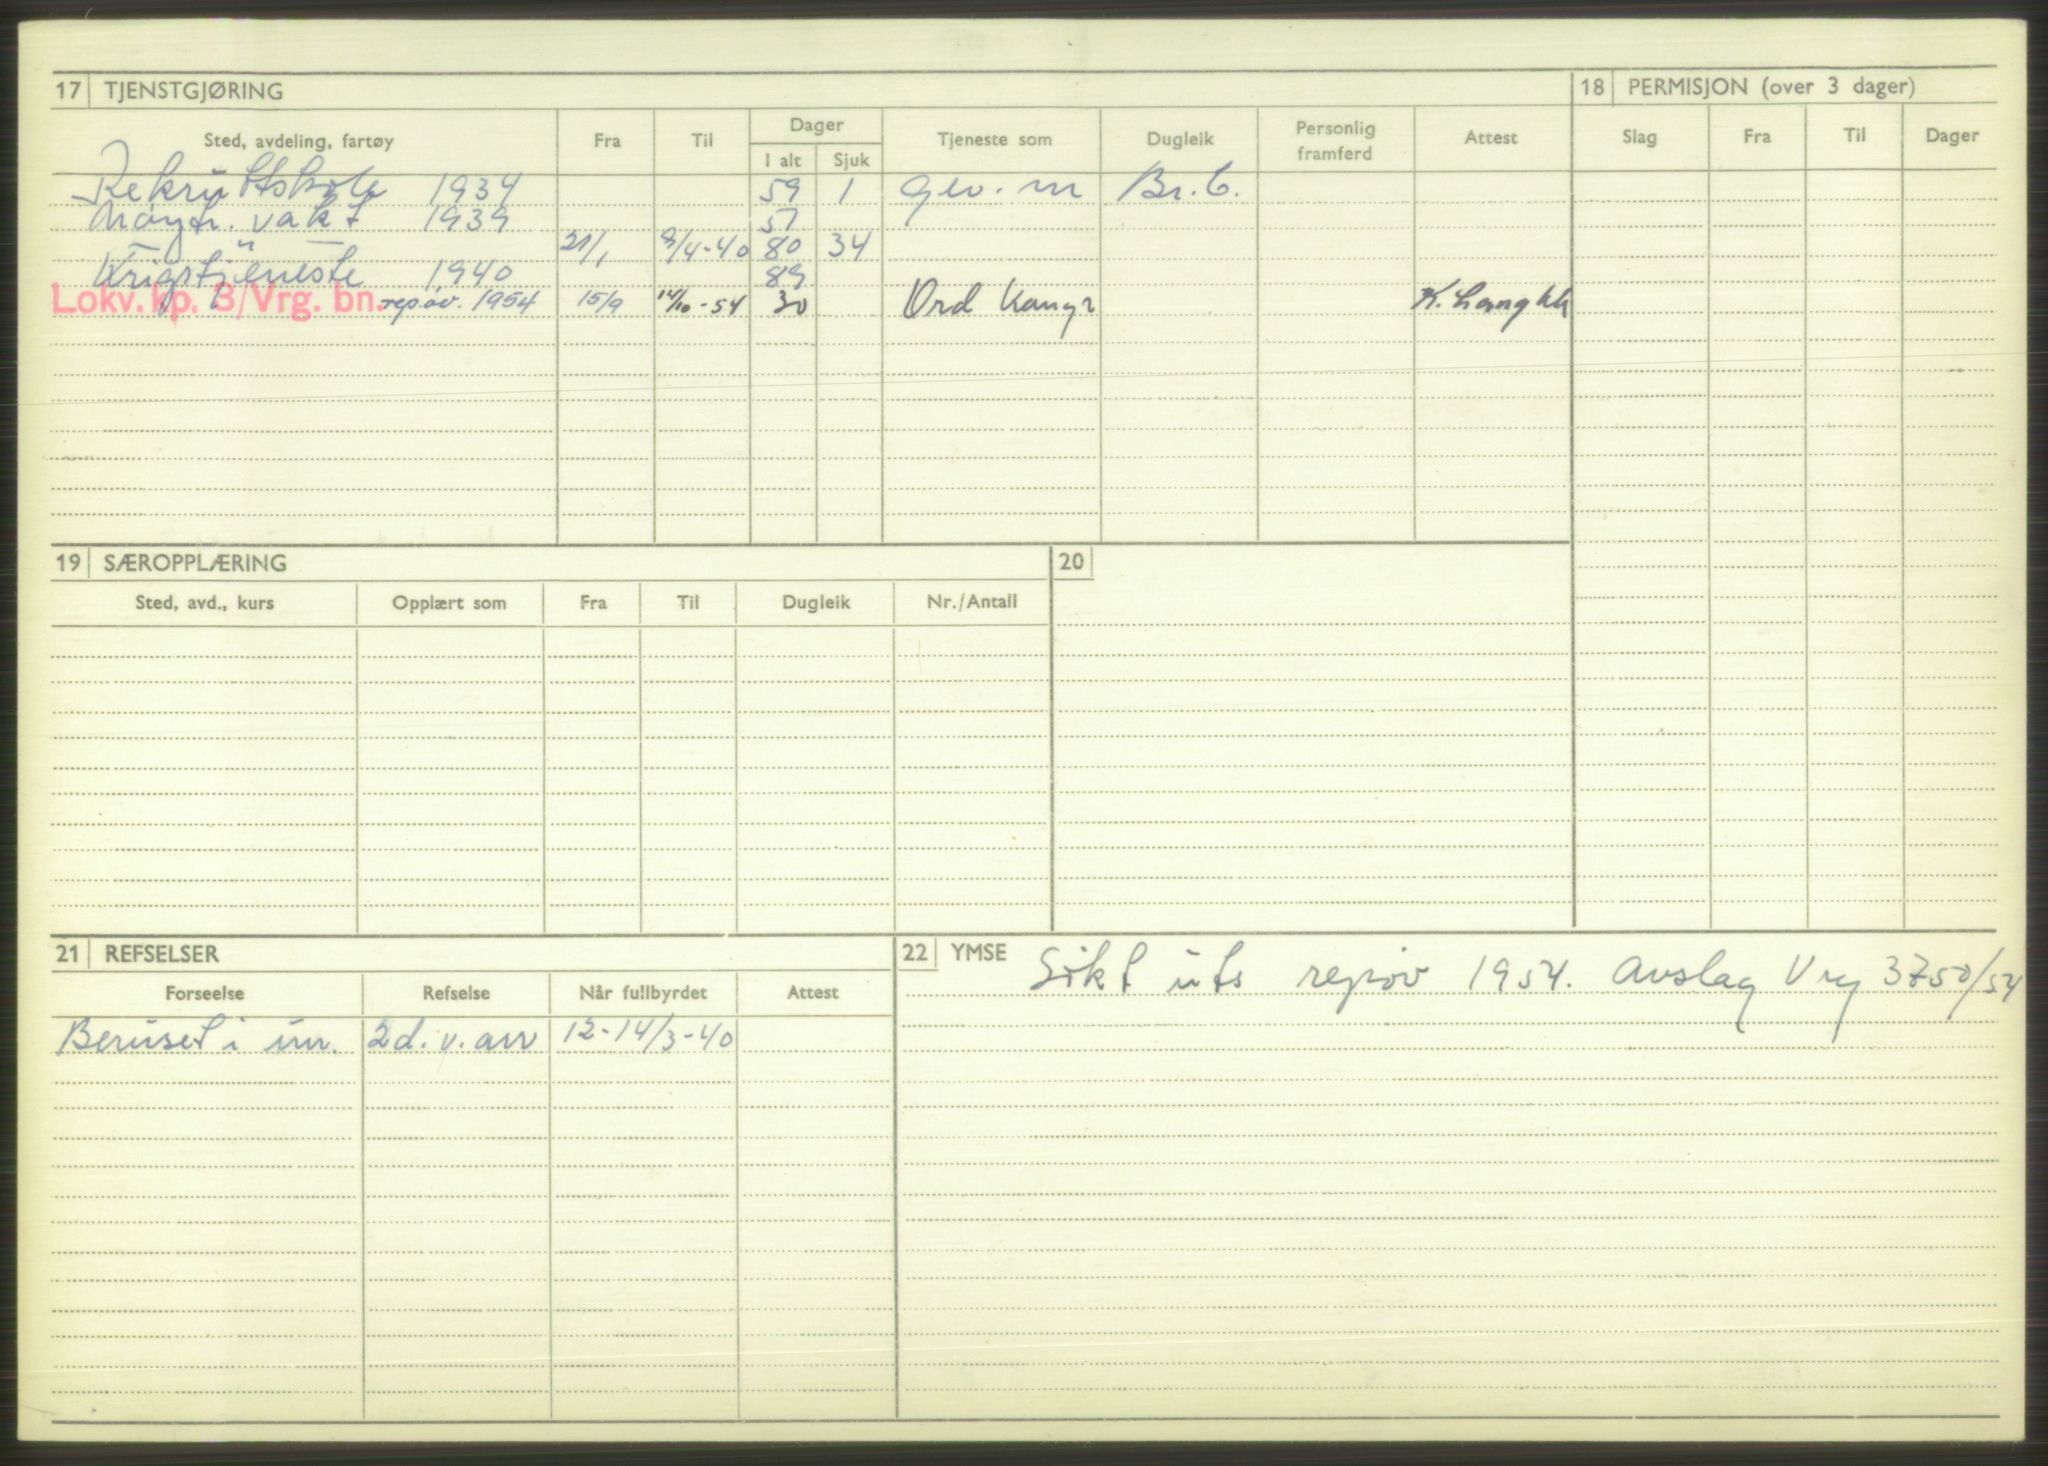 17 TJENSTGJØRING
18 PERMISJON (over 3 dager)
Sted, avdeling, fartøy Fra Til Dager Tjeneste som Dugleik Personlig framferd Attest Slag Fra Til Dager
I alt Sjuk
Rekruttskole 1934 59 1 Gev. m Br. C.
Nøytr. vakt 1939 57
" — 21/1 9/4-40 80 34
Krigstjeneste 1940 89
Lokv. kp. 3/Vrg. bn. repøv. 1954 15/9 14/10-54 30 Ord
19 SÆROPPLÆRING
20
Sted, avd., kurs Opplært som Fra Til Dugleik Nr./Antall
21 REFSELSER
22 YMSE Søkt uts repøv 1954. Avslag Vrg 3750/54
Forseelse Refselse Når fullbyrdet Attest
Beruset i un. 2d. v. arr 12-14/3-40